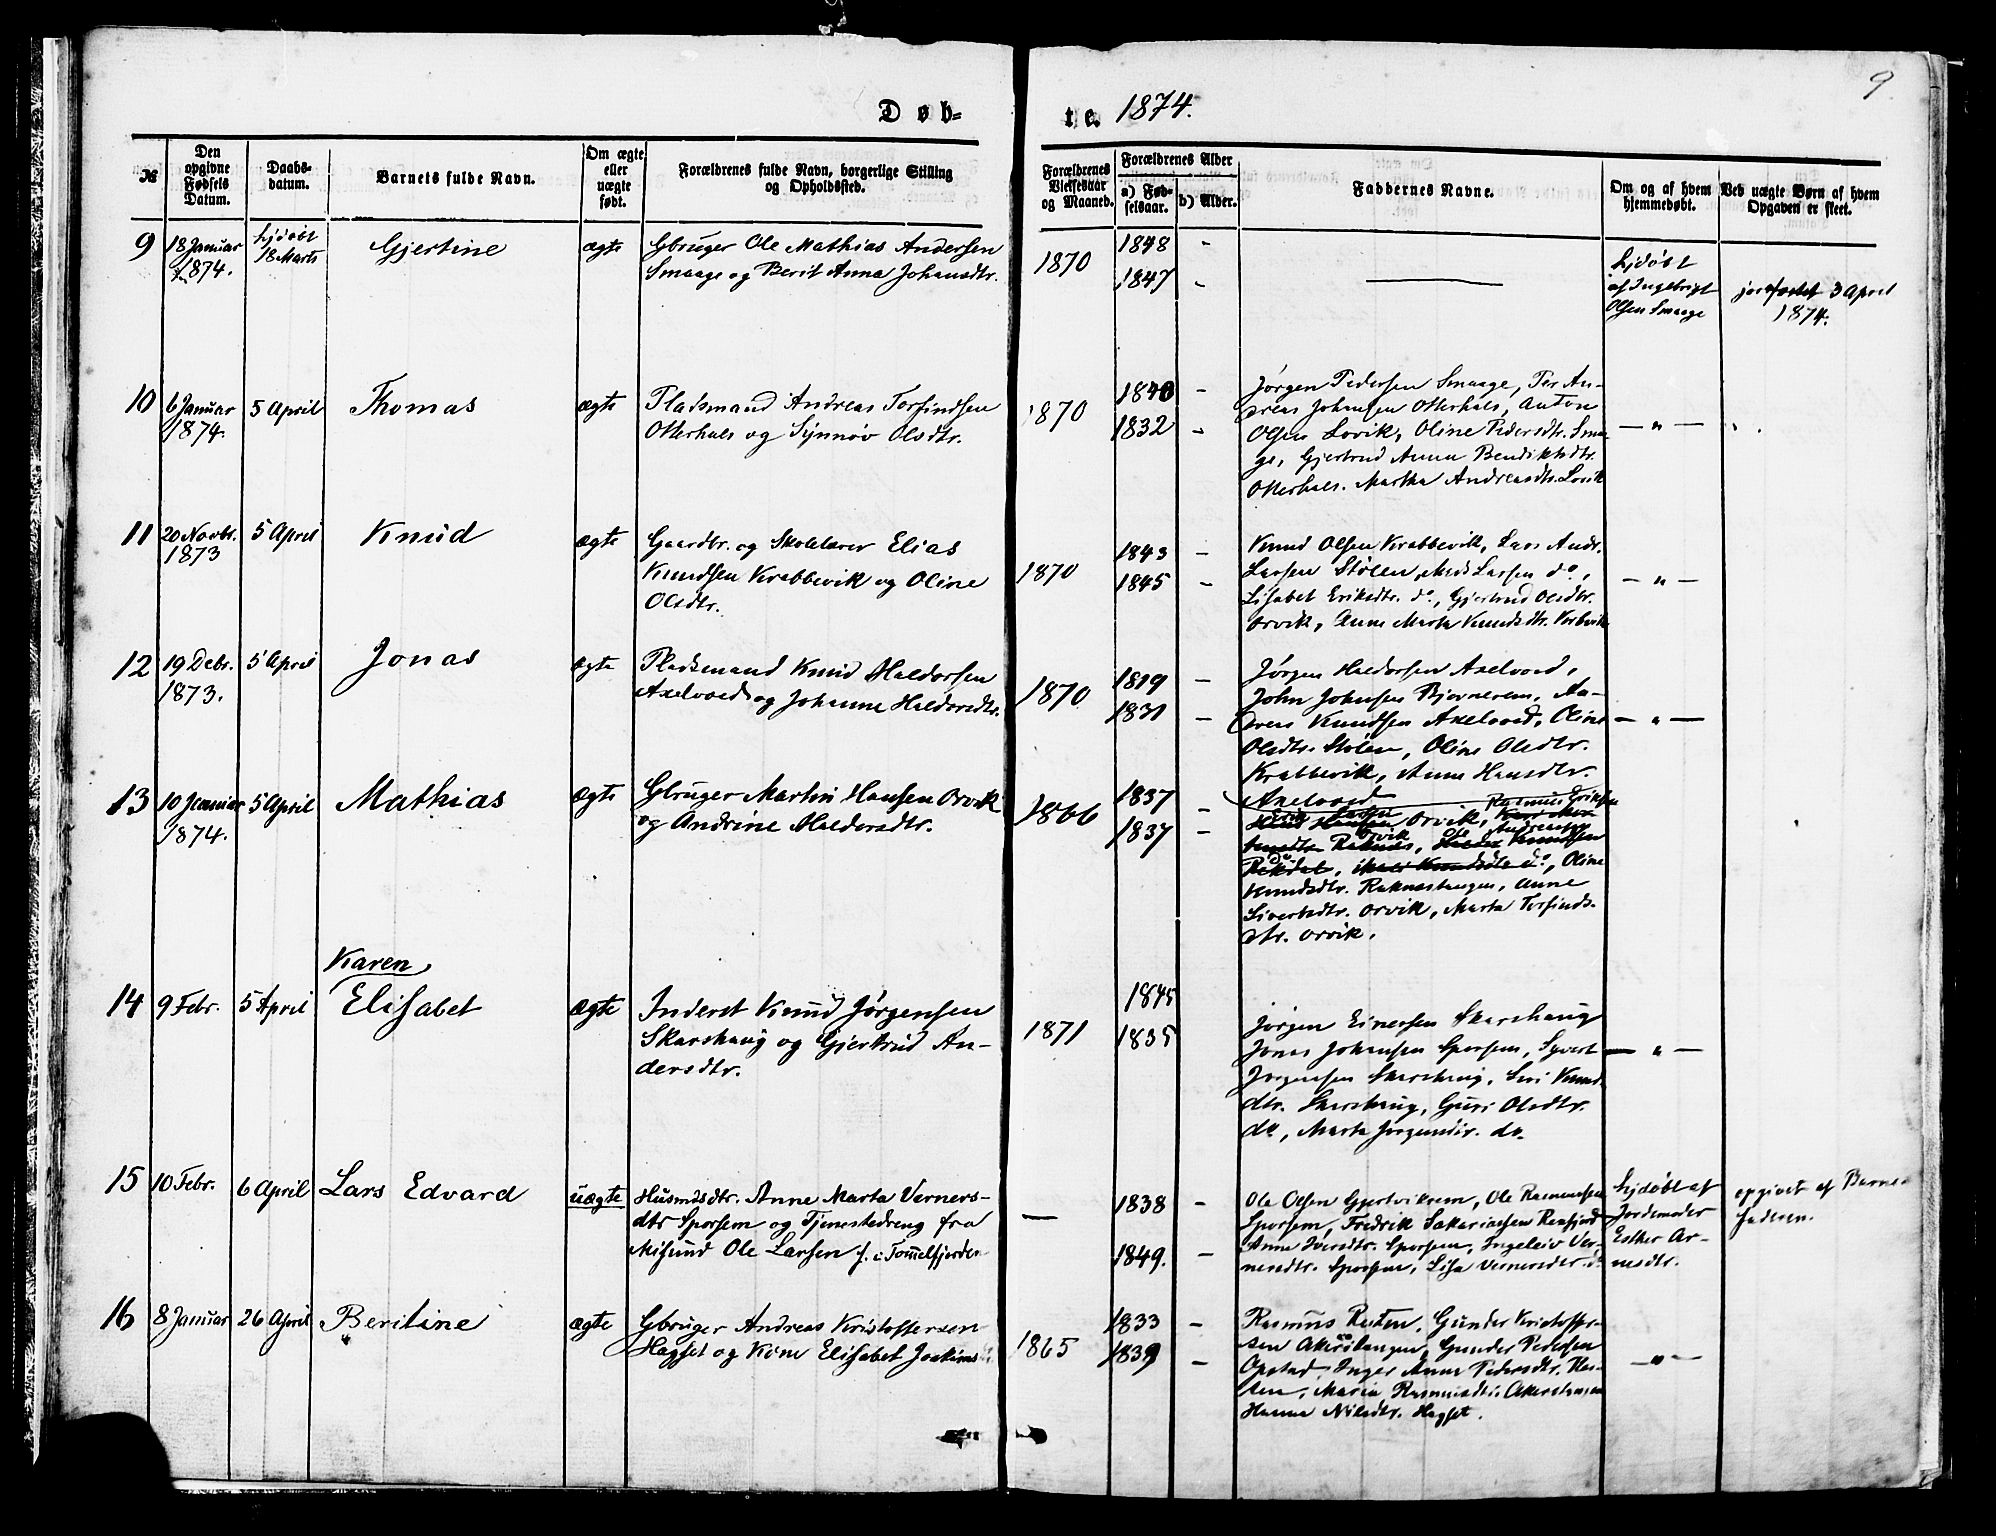 9.
Døb-
te. 1874.
№
Den opgivne Fødsels Datum.
Daabs-datum.
Barnets fulde Navn.
Om ægte eller uægte født.
Forældrenes fulde Navn, borgerlige Stilling og Opholdssted.
Forældrenes Vielsesaar og Maaned.
Forældrenes Alder
a) Fød-selsaar.
b) Alder.
Faddernes Navne.
Om og af hvem hjemmedøbt.
Ved uægte Børn af hvem Opgaven er skeet.
9 18 Januar 1874. hjdøbt 18 Marts Gjertine ægte
Gbruger Ole Mathias Andersen
Smaage og Berit Anna Johansdtr.
1870
1848 -
1847 -
hjdøbt
af Ingebrigt
Olsen Smaage
jordfæstet 3 April
1874.
10 6 Januar 1874. 5 April Thomas ægte
Pladsmand Andreas Torfindsen
Otterhals og Synnøv Olsdtr.
1870
1840 -
1832 -
Jørgen Pedersen Smaage, Per An-
dreas Johansen Otterhals, Anton
Olsen Lovik, Oline Pedersdtr. Smaa-
ge, Gjertrud Anna Bendiktsdtr.
Otterhals. Martha Andreasdtr. Lovik
— " —
11 20 Novbr. 1873 5 April Knud ægte
Gaardbr. og Skolelærer Elias
Knudsen Krabbevik og Oline
Olsdtr.
1870
1843 -
1845 -
Knud Olsen Krabbevik, Lars Andr.
Larsen Stølen, Mads Larsen do,
Lisabet Eriksdtr. do, Gjertrud Olsdtr.
Orvik, Anne Marta Knudsdtr.
— " —
12 19 Debr. 1873. 5 April Jonas ægte
Pladsmand Knud Haldorsen
Axelvoed og Johanne Haldorsdtr.
1870
1819 -
1831 -
Jørgen Haldorsen Axelvoed,
John Johansen Bjørnerem, An-
dreas Knudsen Axelvoed, Oline
Olsdtr. Stølen, Oline Olsdtr.
Krabbevik, Anne Hansdtr.
Axelvoed
— " —
13 10 Januar 1874. 5 April Mathias ægte
Gbruger Martin Hansen Orvik
og Andrine Haldorsdtr.
1866
1837 -
1837 -
Rasmus Eriksen
Orvik,
Oline
Knudsdtr. Raknestangen, Anne
Sivertsdtr. Orvik, Marta Torfinds-
dtr. Orvik.
Karen
14 9 Febr. 5 April Elisabet ægte
Inderst Knud Jørgensen
Skarshaug og Gjertrud An-
dersdtr.
1871
1845
1835
Jørgen Einersen Skarshaug
Jonas Johansen Sporsem, Syvert
Jørgensen Skarshaug, Siri Knuds
dtr. Skarshaug, Guri Olsdtr.
do, Marta Jørgensdtr. do.
— " —
15 10 Febr. 6 April Lars Edvard uægte
Husmdsdtr. Anne Marta Verners-
dtr Sporsem og Tjenestedreng fra
Misund Ole Larsen f. i Tommelfjorden
—
1838 -
1849. -
Ole Olsen Gjertvikrem, Ole Rasmussen
Sporsem, Fredrik Sakariassen
Anne Iversdtr. Sporsem, Ingeleiv Ver-
nersdtr. Sporsem, Lisa Vernersdtr. do
hjdøbt af
Jordemoder
Esther Ar-
nesdtr.
opgivet af Barne-
faderen.
16 8 Januar 26 April Beritine ægte
Gbruger Andreas Kristoffersen
Hagset og Kone Elisabet Joakimsdtr.
1865
1833 -
1839 -
Rasmus Resten, Gunder Kristoffer-
sen Akerstangen, Gunder Pedersen
Opstad, Inger Anne Pedersdtr. Res-
ten, Maria Rasmusdtr. Akerstangen
Hanna Nilsdtr. Hagset.
— " —